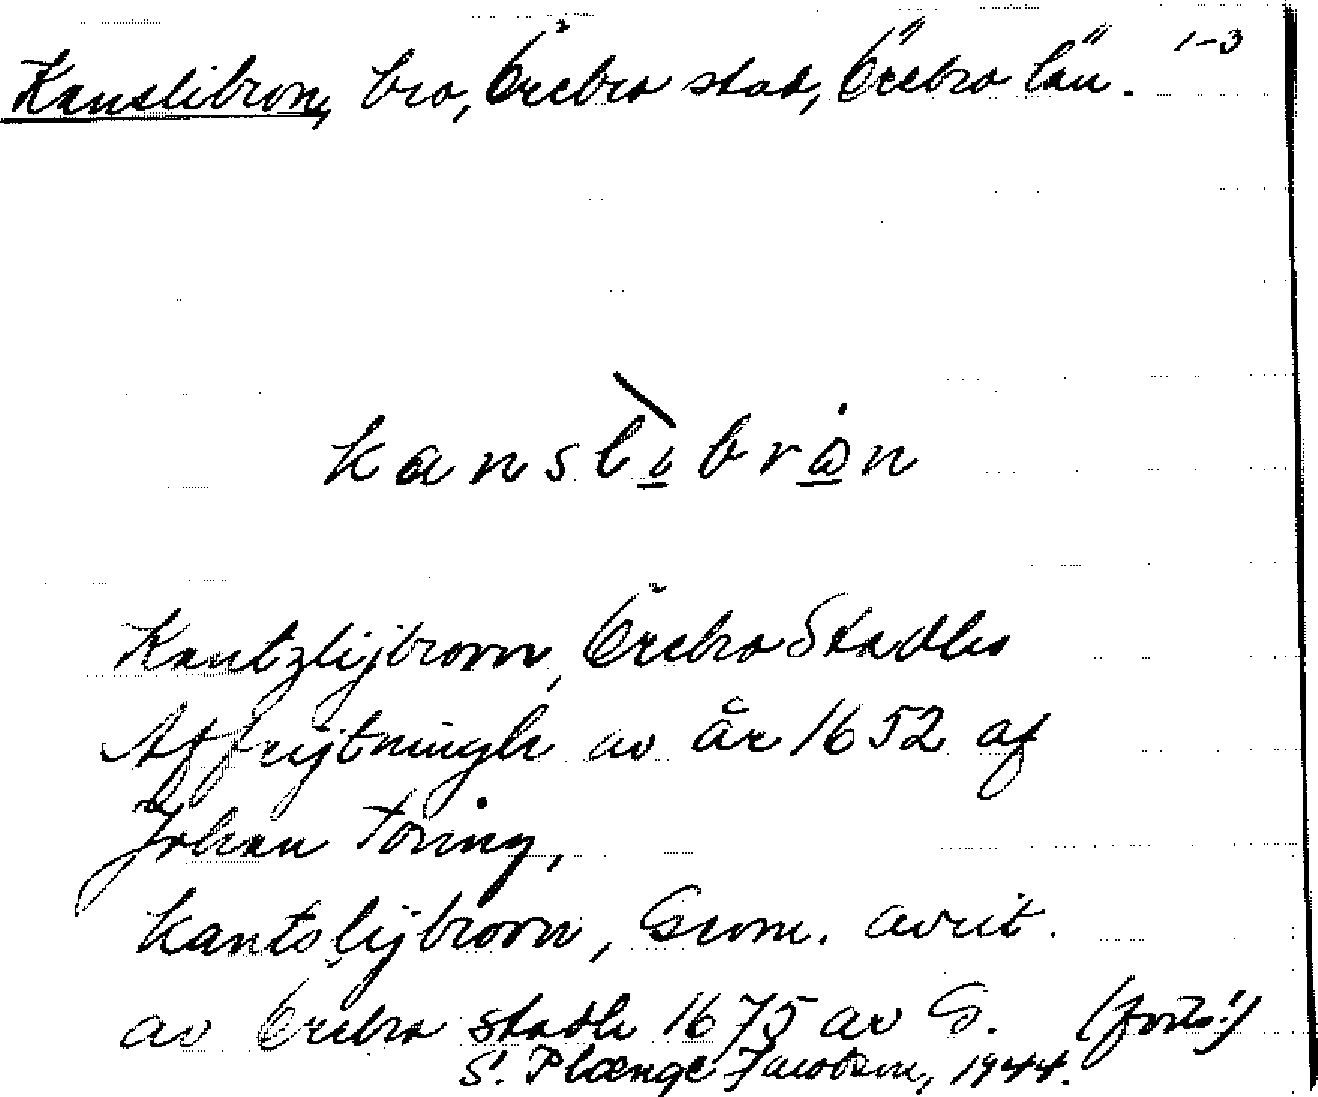 1-3
Kanslibron, bro, Örebro stad, Örebro län.
kanslibrån
Kantzlijbroon, Örebro Stadhs
Affrijtningh av år 1652 af
Johan Töring,
Kantslijbroon, Geom. avrit.
av Örebro stadh 1675 av G. (forts!)
S. Plænge Jacobson, 1944.